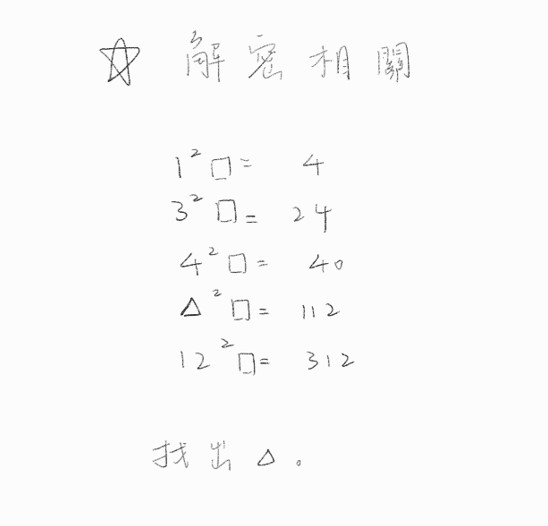 ☆ 解密相關
1²□= 4
3²□= 24
4²□= 40
△²□= 112
12²□= 312
找出△。